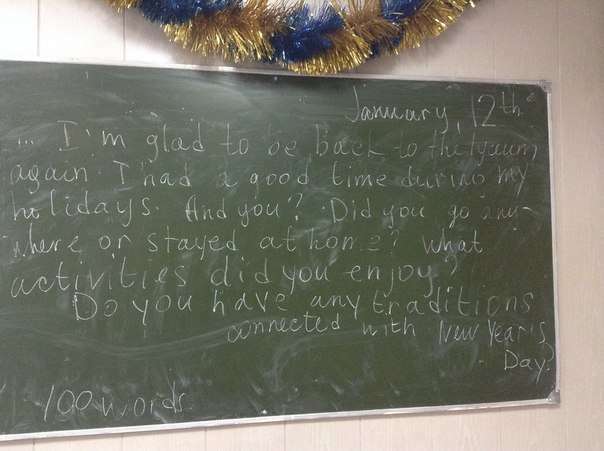 January, 12th
... I'm glad to be back to the lyceum
again. I had a good time during my
holidays. And you? Did you go any-
where or stayed at home? What
activities did you enjoy?
Do you have any traditions
connected with New Year's
Day?
100 words